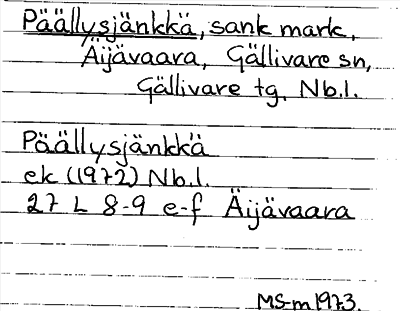 Päällysjänkkä, sank mark,
Äijävaara, Gällivare sn,
Gällivare tg. Nb.l.
Päällysjänkkä
ek (1972) Nb.l.
27 L 8-9 e-f Äijävaara
MS-m 1973.